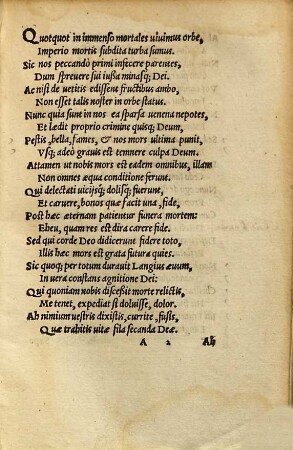 Quotquot in immenso mortales uiuimus orbe,
Imperio mortis subdita turba sumus.
Sic nos peccando primi infecere parentes,
Dum spreuere sui iussa minasq; Dei.
Ac nisi de uetitis edissent fructibus ambo,
Non esset talis noster in orbe status.
Nunc quia sunt in nos ea sparsa uenena nepotes,
Et laedit proprio crimine quisq; Deum,
Pestis, bella, fames, & nos mors ultima punit,
Vsq; adeò grauis est temnere culpa Deum.
Attamen ut nobis mors est eadem omnibus, illam
Non omnes aequa conditione ferunt.
Qui delectati uicijsq; dolisq; fuerunt,
Et caruere, bonos quae facit una, fide,
Post hac aeternam patientur funera mortem:
Eheu, quam res est dira carere fide.
Sed qui corde Deo didicerunt fidere toto,
Illis haec mors est grata futura quies.
Sic quoq; per totum durauit Langius aeuum,
In uera constans agnitione Dei:
Qui quoniam nobis discessit morte relictis,
Me tenet, expediat si doluisse, dolor.
Ah nimium uestris dixistis, currite, fusis,
Quae trahitis uitae fila secanda Deae.
A 2 Ah